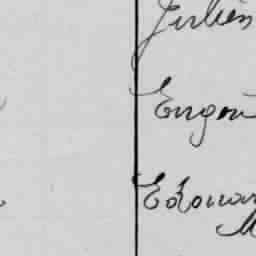 Julien
Eugèn
Edouar
M